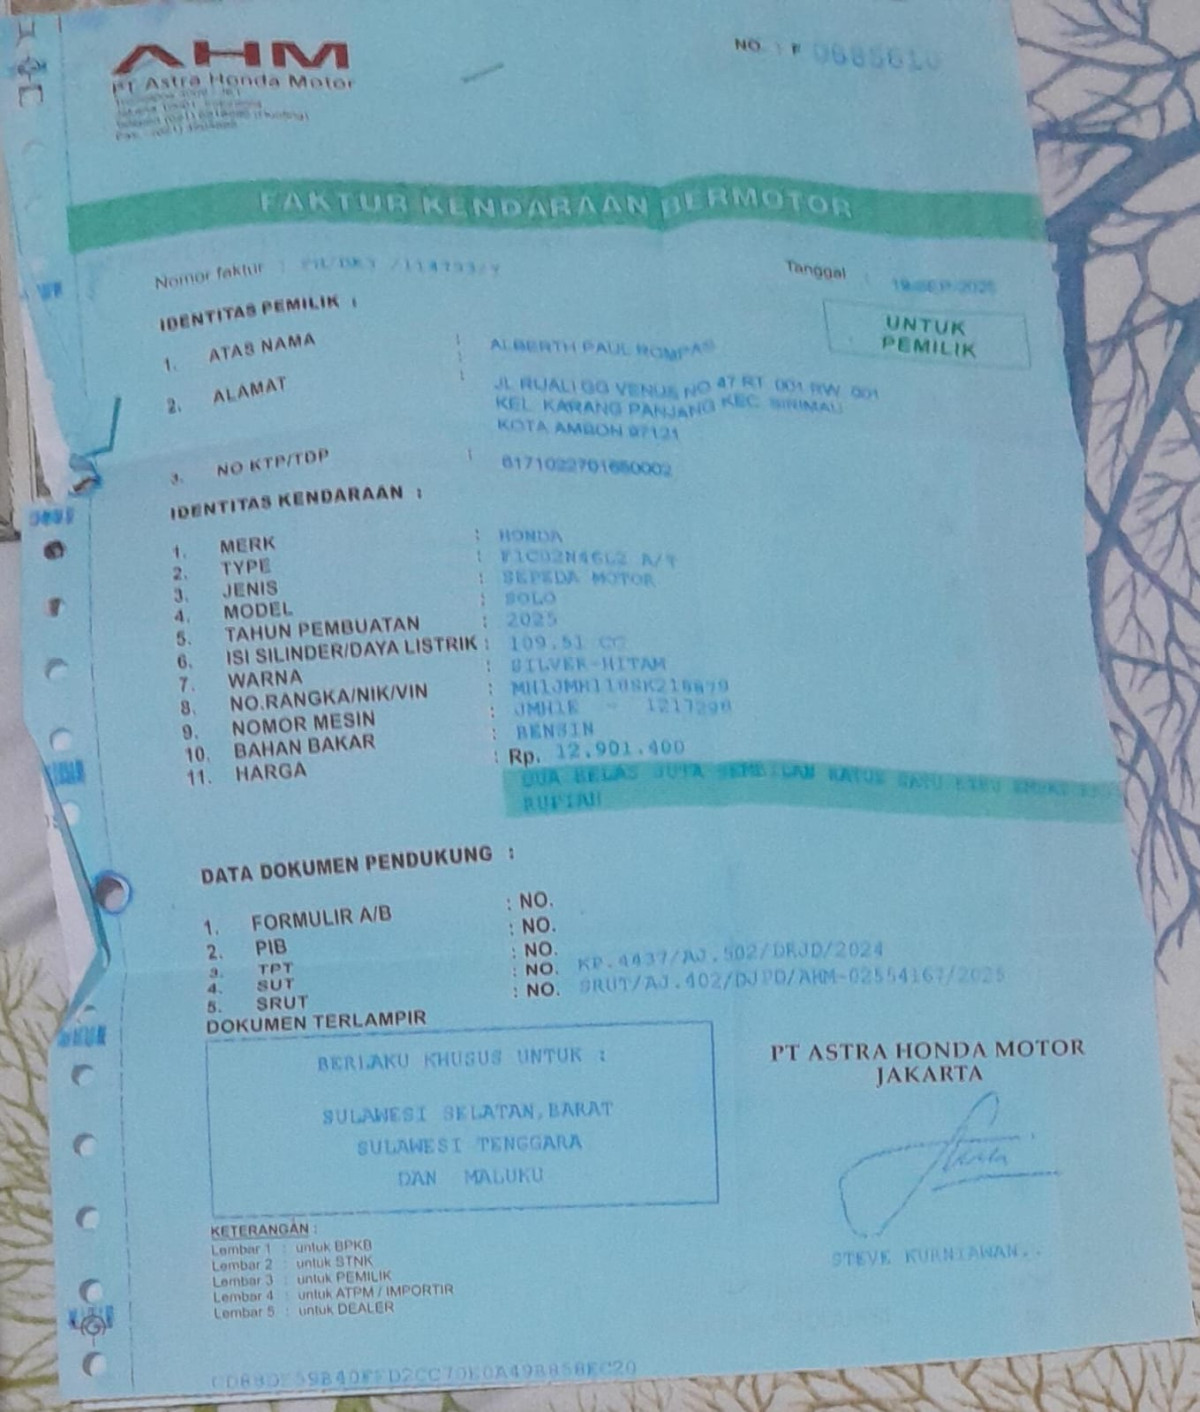 AHM
PT Astra Honda Motor
NO. : F 0685610
FAKTUR KENDARAAN BERMOTOR
Nomor faktur :
Tanggal : 19-SEP-2025
UNTUK
PEMILIK
IDENTITAS PEMILIK :
1. ATAS NAMA : ALBERTH PAUL ROMPAS
2. ALAMAT : JL RIJALI GG VENUS NO 47 RT 001 RW 001
KEL KARANG PANJANG KEC SIRIMAU
KOTA AMBON 97121
3. NO KTP/TDP :
IDENTITAS KENDARAAN :
1. MERK : HONDA
2. TYPE : F1C02N46L2 A/T
3. JENIS : SEPEDA MOTOR
4. MODEL : SOLO
5. TAHUN PEMBUATAN : 2025
6. ISI SILINDER/DAYA LISTRIK : 109.51 CC
7. WARNA : SILVER-HITAM
8. NO.RANGKA/NIK/VIN :
9. NOMOR MESIN : JMH1E -
10. BAHAN BAKAR : BENSIN
11. HARGA : Rp. 12.901.400
DUA BELAS JUTA SEMBILAN RATUS SATU RIBU EMPAT
RUPIAH
DATA DOKUMEN PENDUKUNG :
1. FORMULIR A/B : NO.
2. PIB : NO.
3. TPT : NO.
4. SUT : NO. KP.4437/AJ.502/DRJD/2024
5. SRUT : NO. SRUT/AJ.402/DJPD/AHM-02554167/2025
DOKUMEN TERLAMPIR
BERLAKU KHUSUS UNTUK :
SULAWESI SELATAN,BARAT
SULAWESI TENGGARA
DAN MALUKU
PT ASTRA HONDA MOTOR
JAKARTA
STEVE KURNIAWAN..
KETERANGAN :
Lembar 1 : untuk BPKB
Lembar 2 : untuk STNK
Lembar 3 : untuk PEMILIK
Lembar 4 : untuk ATPM / IMPORTIR
Lembar 5 : untuk DEALER